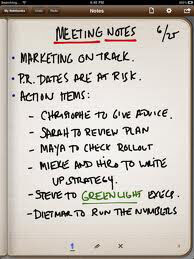 6:45 PM
My Notebooks
Notes
MEETING NOTES
6/25
• MARKETING ON TRACK.
• P.R. DATES ARE AT RISK.
• ACTION ITEMS:
– CHRISTOPHE TO GIVE ADVICE.
– SARAH TO REVIEW PLAN
– MAYA TO CHECK ROLLOUT
– MIEKE AND HIRO TO WRITE
UP STRATEGY.
– STEVE TO GREENLIGHT EXECS.
– DIETMAR TO RUN THE NUMBERS
1